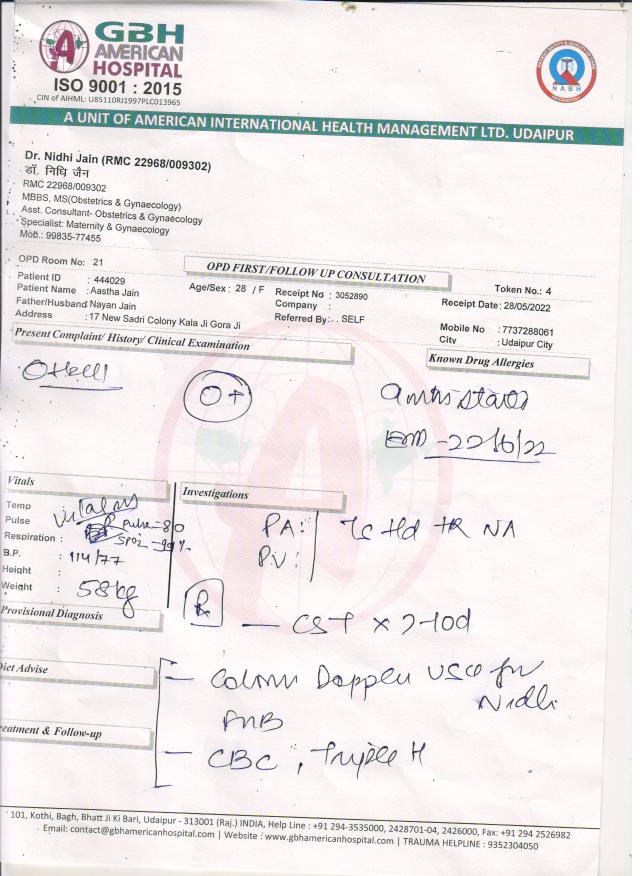 GBH
AMERICAN
HOSPITAL
ISO 9001 : 2015
CIN of AIHML: U85110RJ1997PLC013965
NABH
A UNIT OF AMERICAN INTERNATIONAL HEALTH MANAGEMENT LTD. UDAIPUR
Dr. Nidhi Jain (RMC 22968/009302)
डॉ. निधि जैन
RMC 22968/009302
MBBS, MS(Obstetrics & Gynaecology)
Asst. Consultant- Obstetrics & Gynaecology
Specialist: Maternity & Gynaecology
Mob.: 99835-77455
OPD Room No: 21
OPD FIRST/FOLLOW UP CONSULTATION
Token No.: 4
Patient ID : 444029
Age/Sex : 28 / F
Receipt No : 3052890
Receipt Date : 28/05/2022
Patient Name : Aastha Jain
Company :
Father/Husband Nayan Jain
Referred By: . . SELF
Mobile No : 7737288061
Address : 17 New Sadri Colony Kala Ji Gora Ji
City : Udaipur City
Present Complaint/ History/ Clinical Examination
Known Drug Allergies
O+
22/6/22
Vitals
Investigations
Temp
Pulse
Pulse-80
Respiration :
SPO2-99%
B.P. : 114/77
Height :
Weight : 58kg
PA:
P.V:
Provisional Diagnosis
R
Diet Advise
Doppler USG for
Nidhi
Treatment & Follow-up
CBC, Triple H
101, Kothi, Bagh, Bhatt Ji Ki Bari, Udaipur - 313001 (Raj.) INDIA, Help Line : +91 294-3535000, 2428701-04, 2426000, Fax: +91 294 2526982
Email: contact@gbhamericanhospital.com | Website : www.gbhamericanhospital.com | TRAUMA HELPLINE : 9352304050